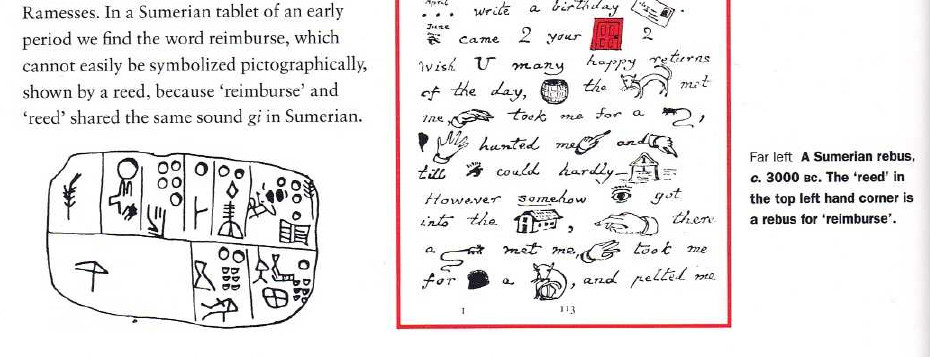 Ramesses. In a Sumerian tablet of an early
period we find the word reimburse, which
cannot easily be symbolized pictographically,
shown by a reed, because ‘reimburse’ and
‘reed’ shared the same sound gi in Sumerian.
write a birthday
came 2 your 2
wish U many happy returns
of the day, the met
me, took me for a
hunted me and
till could hardly
However somehow got
into the , there
a met me, took me
for a , and pelted me
1 113
Far left A Sumerian rebus,
c. 3000 BC. The ‘reed’ in
the top left hand corner is
a rebus for ‘reimburse’.